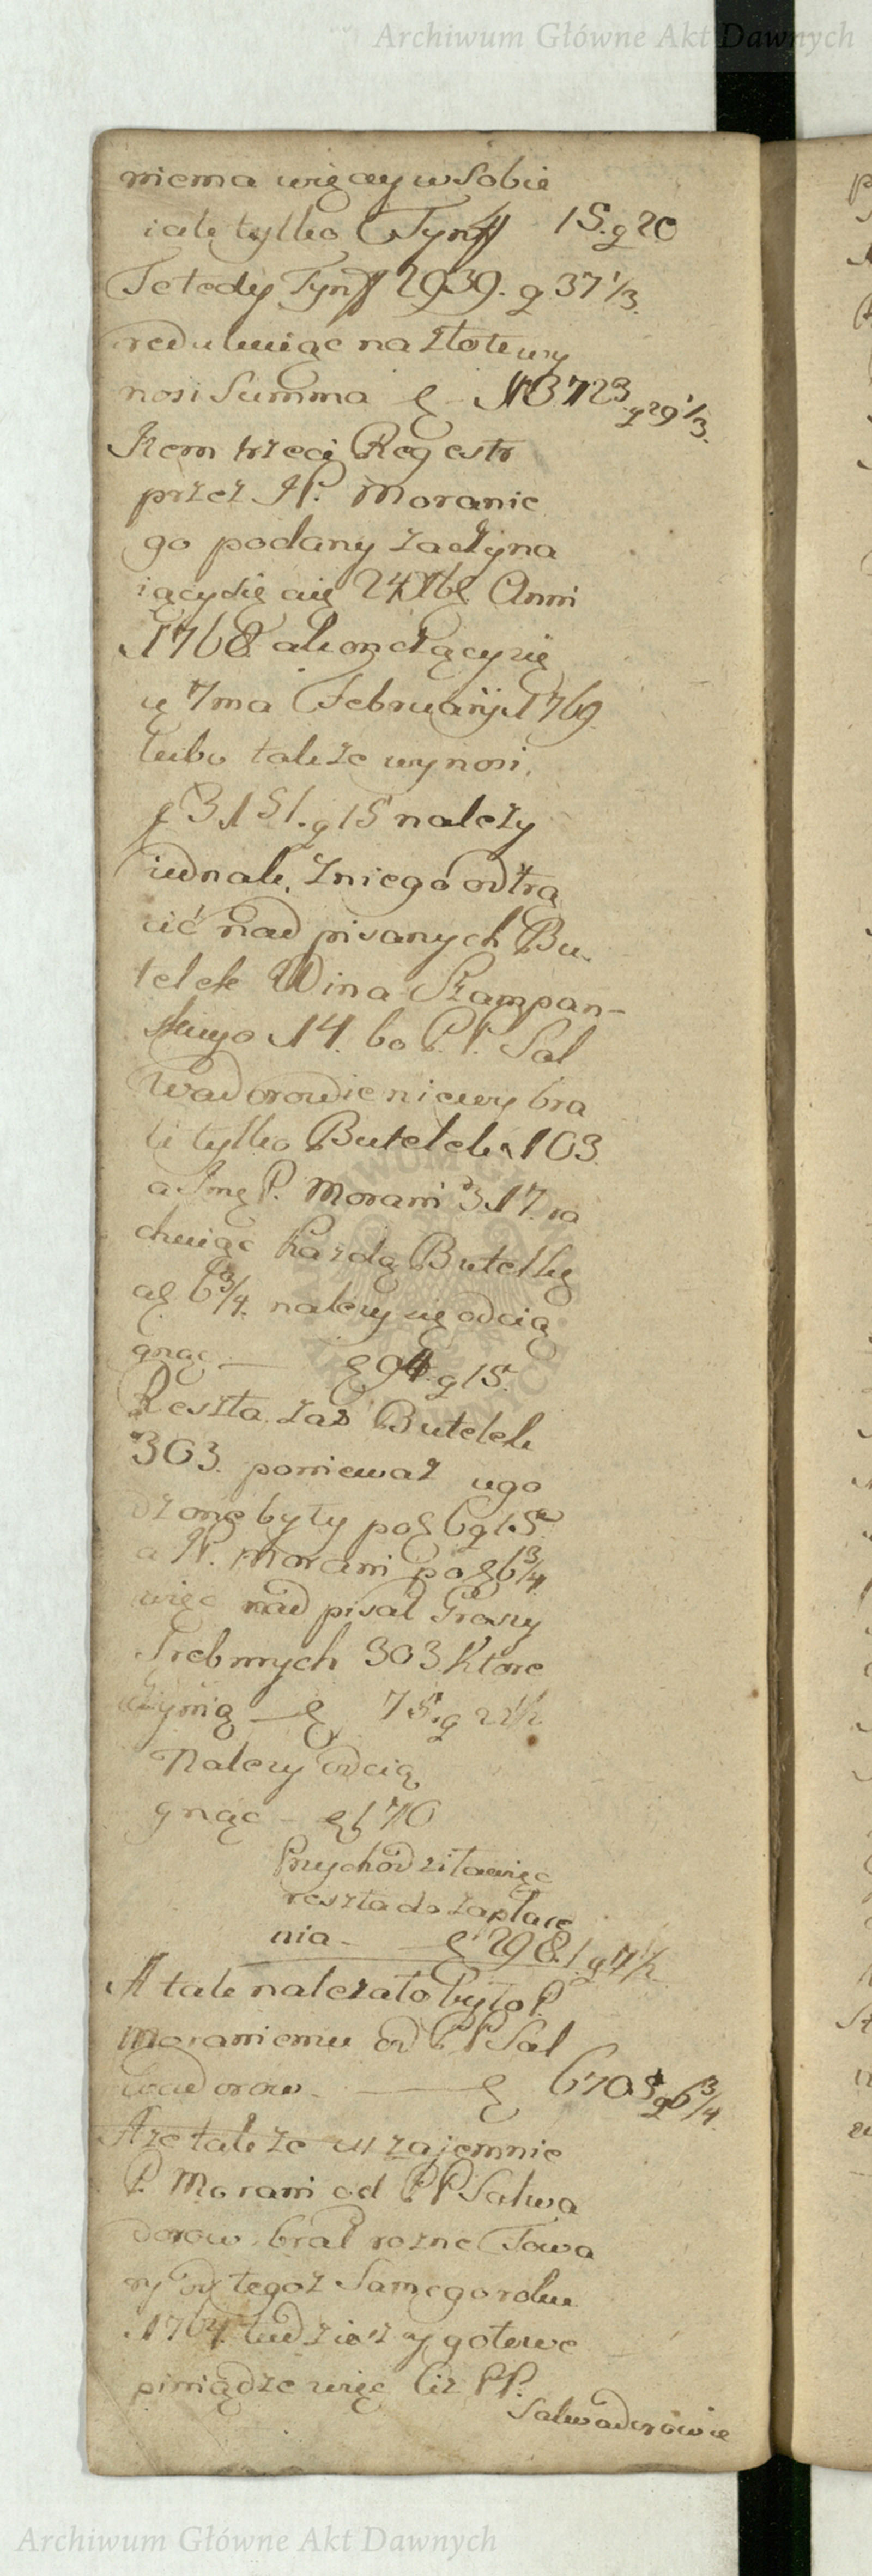 Archiwum Główne Akt Dawnych
niema więcey w Sobie
iak tylko Tynff 15. g 20
Te tedy Tynff 2939. g 37 1/3.
redukuiąc na złote wy
nosi Summa f 3723 g 29 1/3.
Item trzeci Regestr
przez JP. Moranie
go podany zaczyna
iący się 24 Xbr Anni
1768 a konczący się
7ma February 1769
lubo także wynosi,
f 3151. g 15 należy
iednak, z niego odtrą
cić nad pisanych Bu-
telek Wina Szampan-
skiego 14. bo P.P. Sal
wadorowie nie wybra
li tylko Butelek 103
a Jmć P. Morani 317. ra
chuiąc kazdą Butelkę
af 6 3/4. nalezy się odcią
gnąc — f 94. g 15.
Reszta zas Butelek
303. poniewaz ugo
dzone były po f 6 g 15
a JP. Morani po f 6 3/4
więc nad pisał Groszy
Srebrnych 303. ktore
czynią — f 75. g 22 1/2
Nalezy odcią
gnąc – f 170
Przychodziła więc
reszta do zapłace
nia. — f 2981. g 7 1/2
A tak nalezało było P.
Moraniemu od P.P. Sal
wadorow. — f 6705 g 6 3/4.
A ze także wzajemnie
P. Morani od P.P. Salwa
dorow, brał rozne Towa
ry od tegoz Samego roku
1764. tudziesz y gotowe
piniądze więc ciz P.P.
Salwadorowie
Archiwum Główne Akt Dawnych